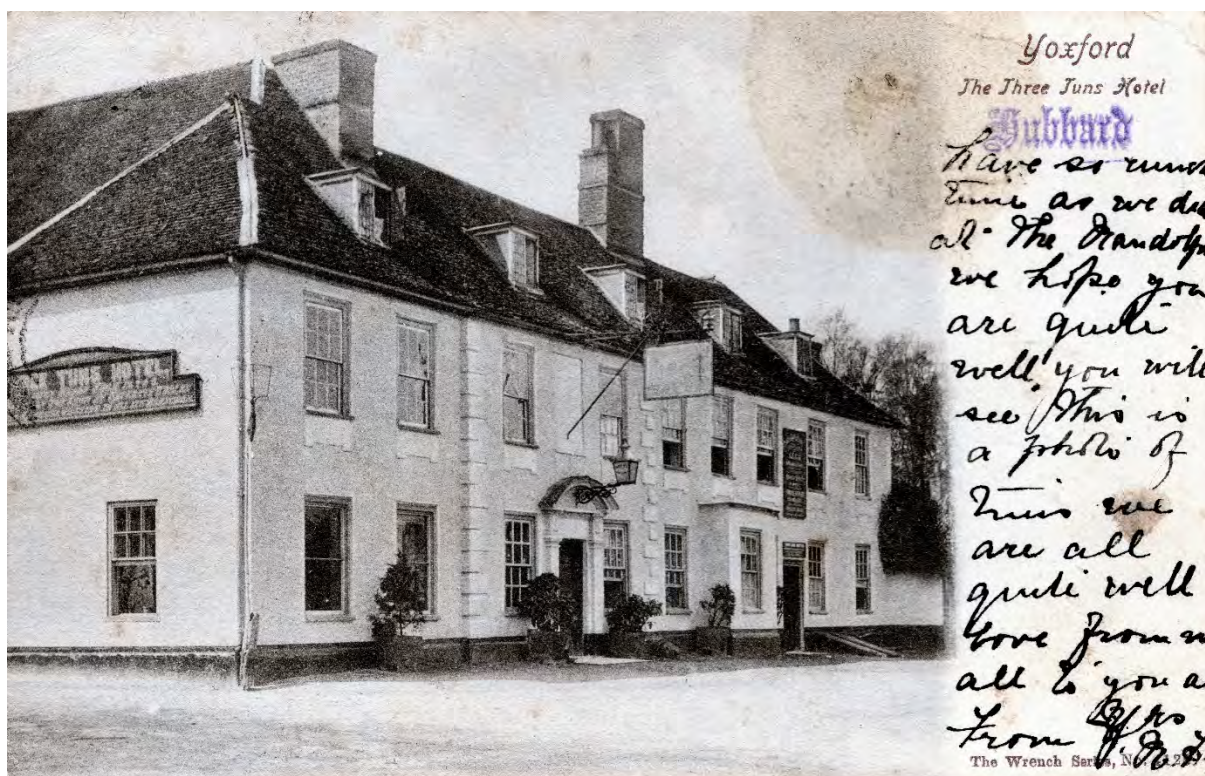 Yoxford
The Three Tuns Hotel
Hubbard
have so much
time as we did
at The Randolph
we hope you
are quite
well, you will
see this is
a photo of
Tuns we
are all
quite well
Love from
all to you
From Yrs
The Wrench Series, No.
TUNS HOTEL